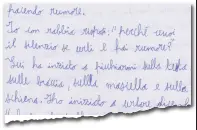 facendo rumore.
Io con rabbia rispos: "perché vuoi
il silenzio se urli e fai rumore?
Lui ha iniziato a picchiarmi sulla testa
sulle braccia, sulla mascella e sulla
schiena. Ho iniziato a urlare dicendo